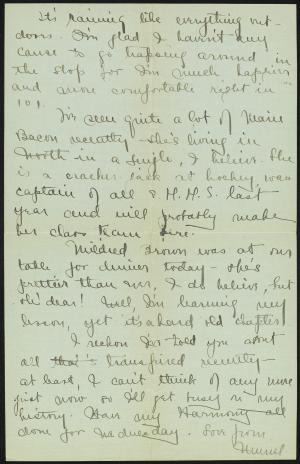 It's raining like everything out-
doors. I'm glad I haven't any
cause to go traipsing around in
the slop for I'm much happier
and more comfortable right in "
101.
I've seen quite a lot of Marie
Bacon recently - she's living in
North - in a single, I believe. She
is a cracker jack at hockey, was
captain of all S. H. H. S. last
year and will probably make
her class team here.
Mildred Brown was at our
table for dinner today - she's
prettier than ever, I do believe, but
old dear! Well, I'm learning my
lesson, yet it's a hard old chapter
I reckon I've told you about
all that's transpired recently -
at least, I can't think of any more
just now so I'll get busy on my
history. Have my Harmony all
done for Wednesday. Love from
Muriel